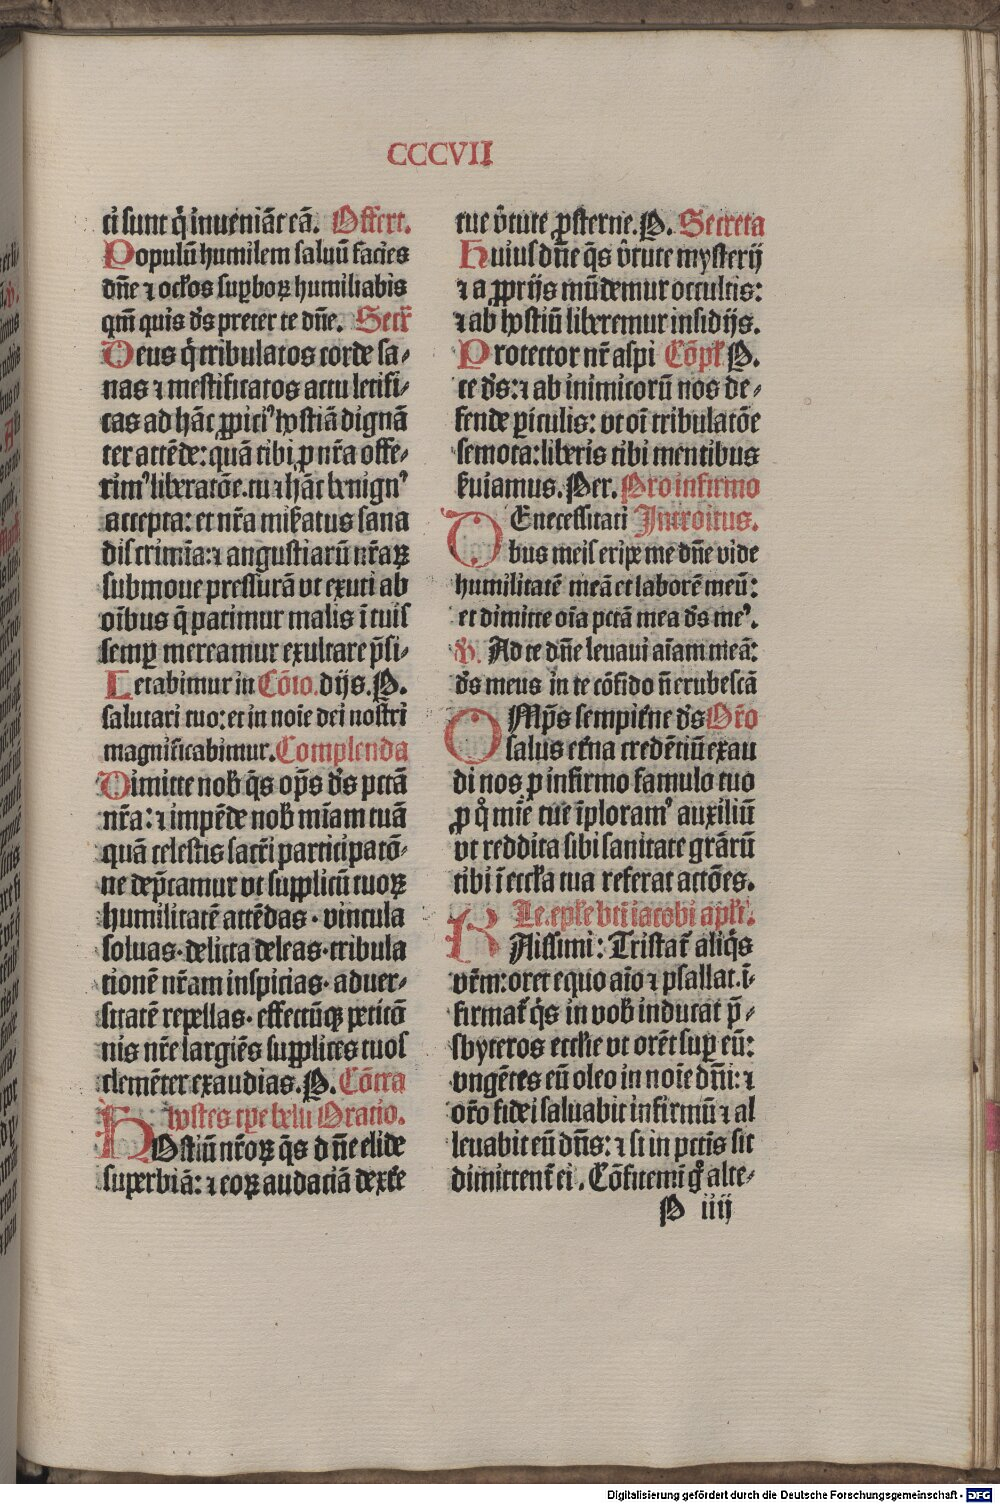 CCCVII
ti sunt q̇ inueniāt eā. Offert.
Populū humilem saluū facies
dn̄e ⁊ oclōs supboꝝ humiliabis
qm̄ quis ds̄ preter te dn̄e. Secr̄
Deus q̇ tribulatos corde sa⸗
nas ⁊ mestificatos actu letifi⸗
cas ad hāc ꝓpiciꝰ hostiā dignā
ter attēde: quā tibi ꝓ nr̄a offe⸗
rimꝰ liberatōe. tu ⁊ hāc benignꝰ
accepta: et nr̄a mis̄eatus sana
discrimīa: ⁊ angustiarū nr̄aꝝ
submoue pressurā vt exuti ab
oībus q̄ patimur malis ī tuis
semꝑ mereamur exultare p̄si⸗
Letabimur in Cōīo. dijs. P.
salutari tuo: et in noīe dei nostri
magnificabimur. Complenda
Dimitte nob̄ q̄s op̄s ds̄ pctā
nr̄a: ⁊ impēde nob̄ mīam tuā
quā celestis sacr̄i participatō⸗
ne dep̄camur vt supplicū tuoꝝ
humilitatē attēdas · vincula
soluas · delicta deleas · tribula
tionē nr̄am inspicias · aduer⸗
sitatē repellas · effectūqꝫ petitō
nis nr̄e largiēs supplices tuos
clemēter exaudias. P. Cōtra
hostes tꝑe belli Oratio.
HOstiū nr̄oꝝ q̄s dn̄e elide
superbiā: ⁊ eoꝝ audaciā dext̄e
tue v̄tute ꝓsterne. P. Secreta
Huius dn̄e q̄s v̄tute mysterij
⁊ a ꝓprijs mūdemur occultis:
⁊ ab hostiū liberemur insidijs.
Protector nr̄ aspi Cōpl̄ P.
ce ds̄: ⁊ ab inimicorū nos de⸗
fende ꝑiculis: vt oī tribulatōe
semota: liberis tibi mentibus
s̄uiamus. Per. Pro infirmo
DE necessitati Introitus.
bus meis eripe me dn̄e vide
humilitatē meā et laborē meū:
et dimitte oīa pctā mea ds̄ meꝰ.
V̄. Ad te dn̄e leuaui aīam meā:
ds̄ meus in te cōfido n̄ erubescā
OMp̄s sempit̄ne ds̄ Or̄o
salus et̄na credētiū exau
di nos ꝓ infirmo famulo tuo
ꝓ q̊ mīe tue īploramꝰ auxiliū
vt reddita sibi sanitate grār̄ū
tibi ī eccl̄ia tua referat actōes.
Le. epl̄e btī iacobi apl̄i.
KArissimi: Tristat̄ aliq̇s
vr̄m: oret equo aīo ⁊ psallat. ī⸗
firmat̄ q̇s in vob̄ inducat p̄⸗
sbyteros eccl̄ie vt orēt suꝑ eū:
vngētes eū oleo in noīe dn̄i: ⁊
or̄o fidei saluabit infirmū ⁊ al
leuabit eū dn̄s: ⁊ si in pctīs sit
dimittent̄ ei. Cōfitemī g̊ alte⸗
P iiij
Digitalisierung gefördert durch die Deutsche Forschungsgemeinschaft - DFG